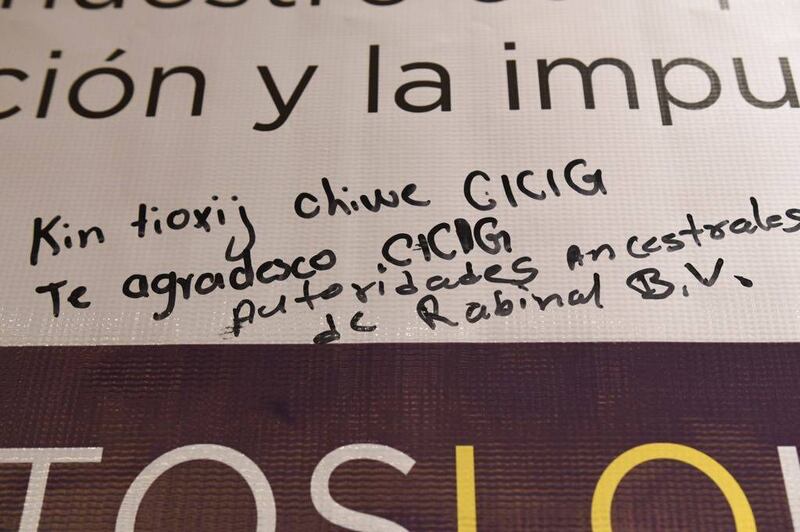 ción y la impu
Kin tioxij chiwe CICIG
Te agradesco CICIG
Autoridades Ancestrales
de Rabinal B.V.
TOSLO